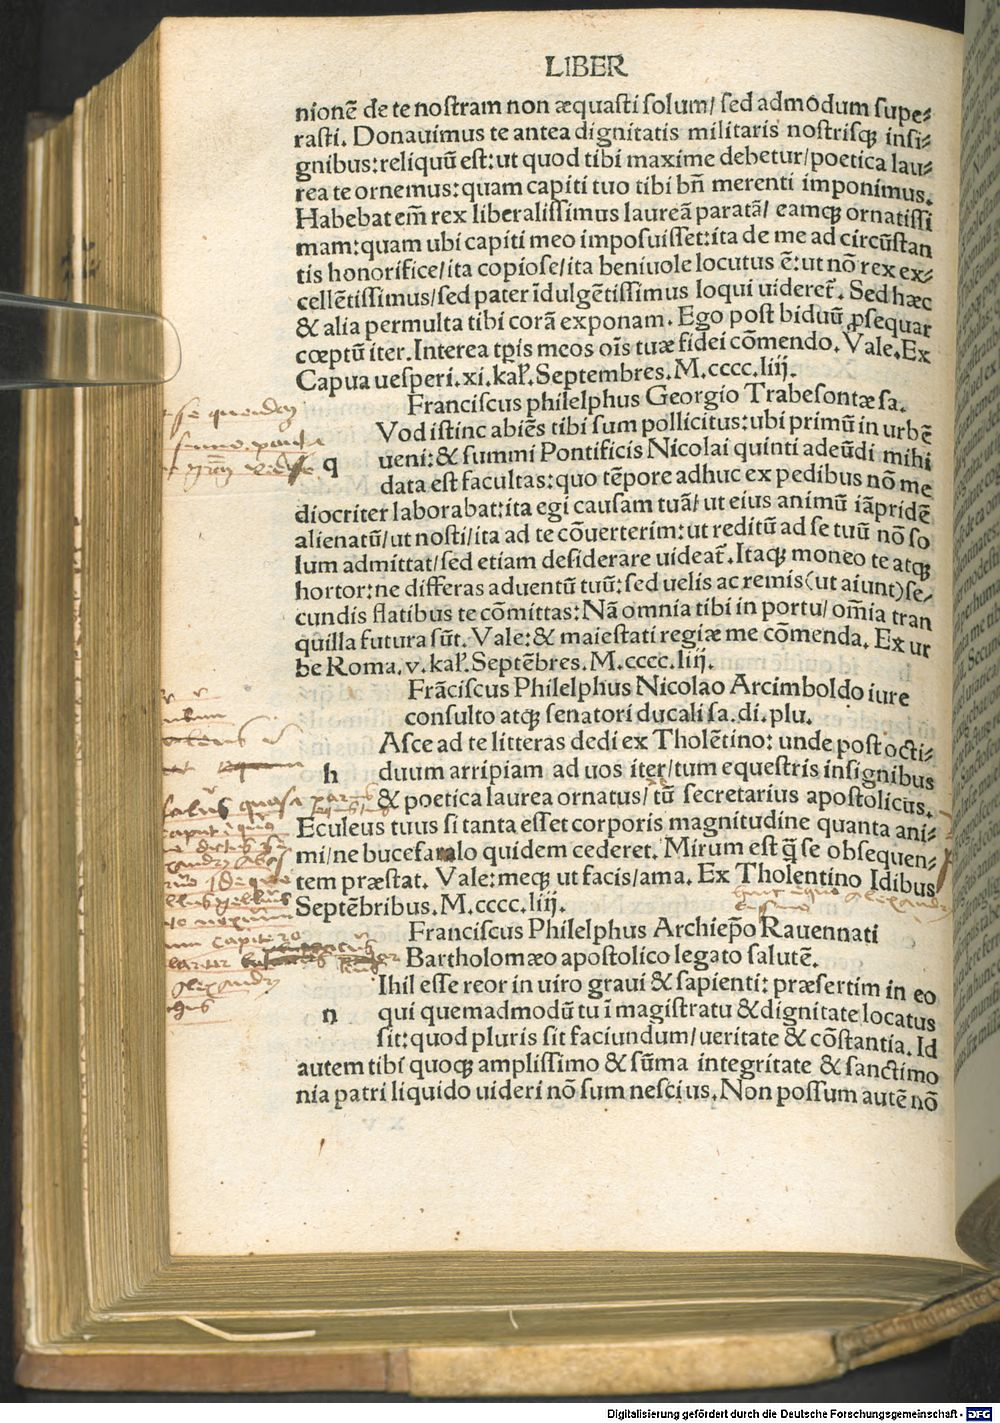 LIBER
nionē de te nostram non æquasti solum/ sed admodum supe⸗
rasti. Donauimus te antea dignitatis militaris nostrisqꝫ insi⸗
gnibus:reliquū est: ut quod tibi maxime debetur/poetica lau⸗
rea te ornemus: quam capiti tuo tibi bn̄ merenti imponimus.
Habebat em̄ rex liberalissimus laureā paratā/ eamqꝫ ornatissi
mam:quam ubi capiti meo imposuisset:ita de me ad circūstan
tis honorifice/ita copiose/ita beniuole locutus ē:ut nō rex ex⸗
cellētissimus/sed pater īdulgētissimus loqui uideret᷑. Sed hæc
& alia permulta tibi corā exponam. Ego post biduū ꝓsequar
cœptū iter.Interea tp̄is meos oīs tuæ fidei cōmendo. Vale.Ex
Capua uesperi.xi.kal̄.Septembres.M.cccc.liij.
Franciscus philelphus Georgio Trabesontæ sa.
Vod istinc abiēs tibi sum pollicitus:ubi primū in urbē
q ueni:& summi Pontificis Nicolai quinti adeūdi mihi
data est facultas:quo tēpore adhuc ex pedibus nō me
diocriter laborabat:ita egi causam tuā/ ut eius animū iāpridē
alienatū/ut nosti/ita ad te cōuerterim:ut reditū ad se tuū nō so
lum admittat/sed etiam desiderare uideat᷑.Itaqꝫ moneo te atqꝫ
hortor:ne differas aduentū tuū:sed uelis ac remis(ut aiunt)se⸗
cundis flatibus te cōmittas:Nā omnia tibi in portu/ om̄ia tran
quilla futura sūt. Vale:& maiestati regiæ me cōmenda. Ex ur
be Roma.v.kal̄.Septēbres.M.cccc.liij.
Frāciscus Philelphus Nicolao Arcimboldo iure
consulto atqꝫ senatori ducali sa.di.plu.
Asce ad te litteras dedi ex Tholētino: unde post octi⸗
h duum arripiam ad uos iter/tum equestris insignibus
& poetica laurea ornatus/ tū secretarius apostolicus.
Eculeus tuus si tanta esset corporis magnitudine quanta ani⸗
mi/ne bucefalo quidem cederet. Mirum est q̄ se obsequen⸗
tem præstat. Vale:meqꝫ ut facis/ama. Ex Tholentino Idibus
Septēbribus.M.cccc.liij.
Franciscus Philelphus Archiep̄o Rauennati
Bartholomæo apostolico legato salutē.
Ihil esse reor in uiro graui & sapienti: præsertim in eo
n qui quemadmodū tu ī magistratu & dignitate locatus
sit:quod pluris sit faciundum/ueritate & cōstantia. Id
autem tibi quoqꝫ amplissimo & sūma integritate & sanctimo
nia patri liquido uideri nō sum nescius.Non possum autē nō
Digitalisierung gefördert durch die Deutsche Forschungsgemeinschaft - DFG